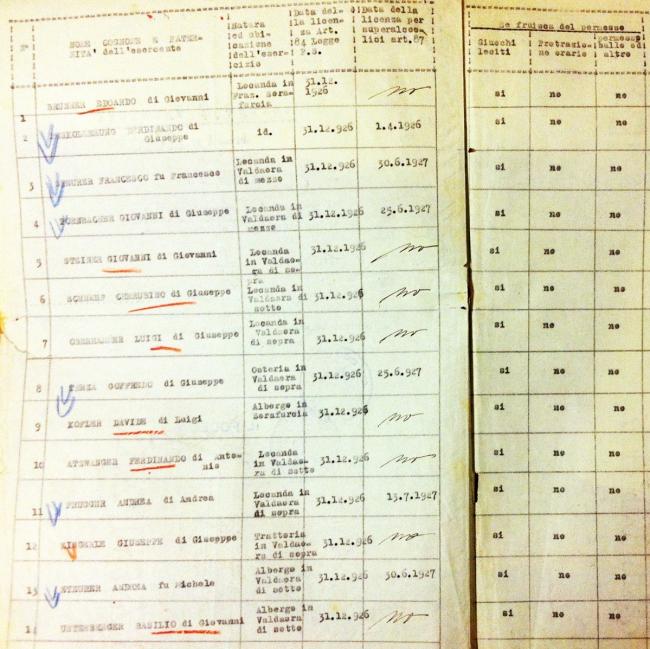 N° NOME COGNOME E PATER- Natura Data del- Data della Se fruisce del permesso
NITA' dell'esercente ed ubi- la licen- licenza per Giuochi Protrazio- permesso
cazione za Art. superalcoo- leciti ne orario ballo od
dell'eser- 84 Legge lici art.87 altro
cizio P.S.
Locanda in 31.12.
1 BRUNNER EDOARDO di Giovanni Fraz. Sora- 1926 no si no no
furcia
2 FERDINANDO di id. 31.12.926 1.4.1926 si no no
Giuseppe
Locanda in
3 FRANCESCO fu Francesco Valdaora 31.12.926 30.6.1927 si no no
di mezzo
Locanda in
4 GIOVANNI di Giuseppe Valdaora di 31.12.1926 25.6.1927 si no no
mezzo
5 STEINER GIOVANNI di Giovanni Locanda 31.12.1926 no si no no
in Valdao-
ra di so-
pra
6 CHERUBINO di Giuseppe Locanda in 31.12.926 no si no no
Valdaora di
sotto
Locanda in
7 OBERHAMMER LUIGI di Giuseppe Valdaora 31.12.926 no si no no
di sopra
Osteria in
8 GOFFREDO di Giuseppe Valdaora 31.12.926 25.6.927 si no no
di sopra
9 KOFLER DAVIDE di Luigi Albergo in 31.12.926 no si no no
Sorafurcia
10 ATZWANGER FERDINANDO di Anto- Locanda 31.12.926 no si no no
nio in Valdao-
ra di sotto
11 PRUGGER ANDREA di Andrea Locanda in 31.12.926 13.7.1927 si no no
Valdaora
di sopra
12 GIUSEPPE di Giuseppe Trattoria 31.12.926 no si no no
in Valdao-
ra di sopra
Albergo in
13 STEURER ANDREA fu Michele Valdaora 31.12.926 30.6.1927 si no no
di sotto
Albergo in
14 UNTERBERGER BASILIO di Giovanni Valdaora 31.12.926 no si no no
di sotto